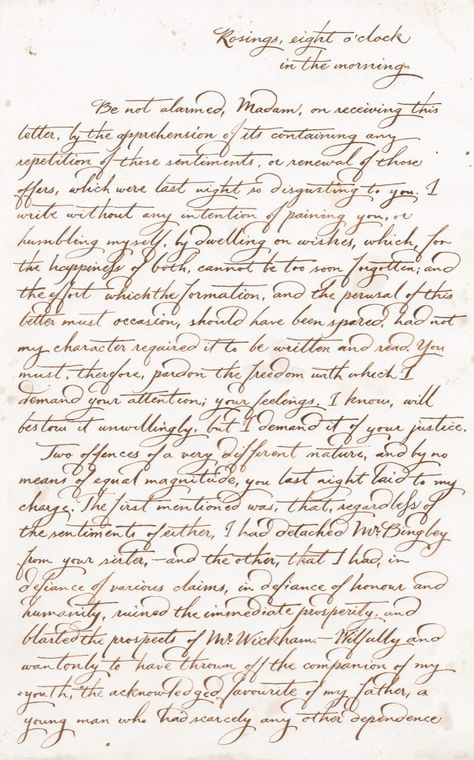 Rosings, eight o'clock
in the morning
Be not alarmed, Madam, on receiving this
letter, by the apprehension of its containing any
repetition of those sentiments, or renewal of those
offers, which were last night so disgusting to you. I
write without any intention of paining you, or
humbling myself, by dwelling on wishes, which, for
the happiness of both, cannot be too soon forgotten; and
the effort which the formation, and the perusal of this
letter must occasion, should have been spared, had not
my character required it to be written and read. You
must, therefore, pardon the freedom with which I
demand your attention; your feelings, I know, will
bestow it unwillingly, but I demand it of your justice.
Two offences of a very different nature, and by no
means of equal magnitude, you last night laid to my
charge. The first mentioned was, that, regardless of
the sentiments of either, I had detached Mr. Bingley
from your sister, — and the other, that I had, in
defiance of various claims, in defiance of honour and
humanity, ruined the immediate prosperity, and
blasted the prospects of Mr. Wickham. — Wilfully and
wantonly to have thrown off the companion of my
youth, the acknowledged favourite of my father, a
young man who had scarcely any other dependence